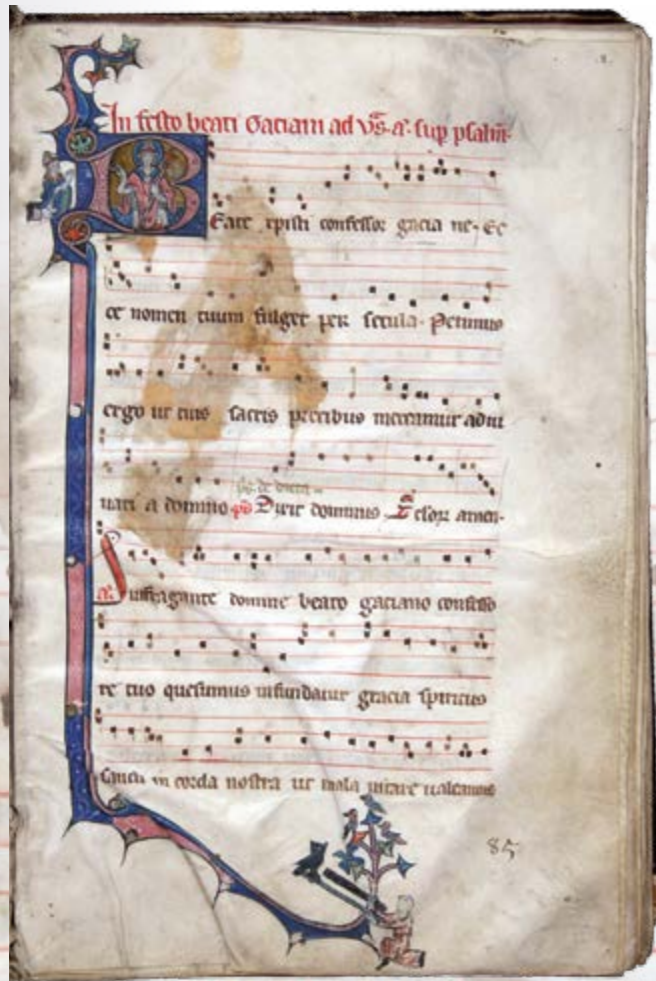 In festo beati Gatiani ad vs. a. sup psalm.
Beate xpisti confessor gacia ne. Ec
ce nomen tuum fulget per secula. Petimus
ergo ut tuis sacris precibus mereamur adiu
uari a domino ps Dixit dominus celor amen.
a. Suffragante domine beato gaciano confesso
re tuo quesumus infundatur gracia spiritus
sancti in corda nostra ut mala uitare ualeamus
85